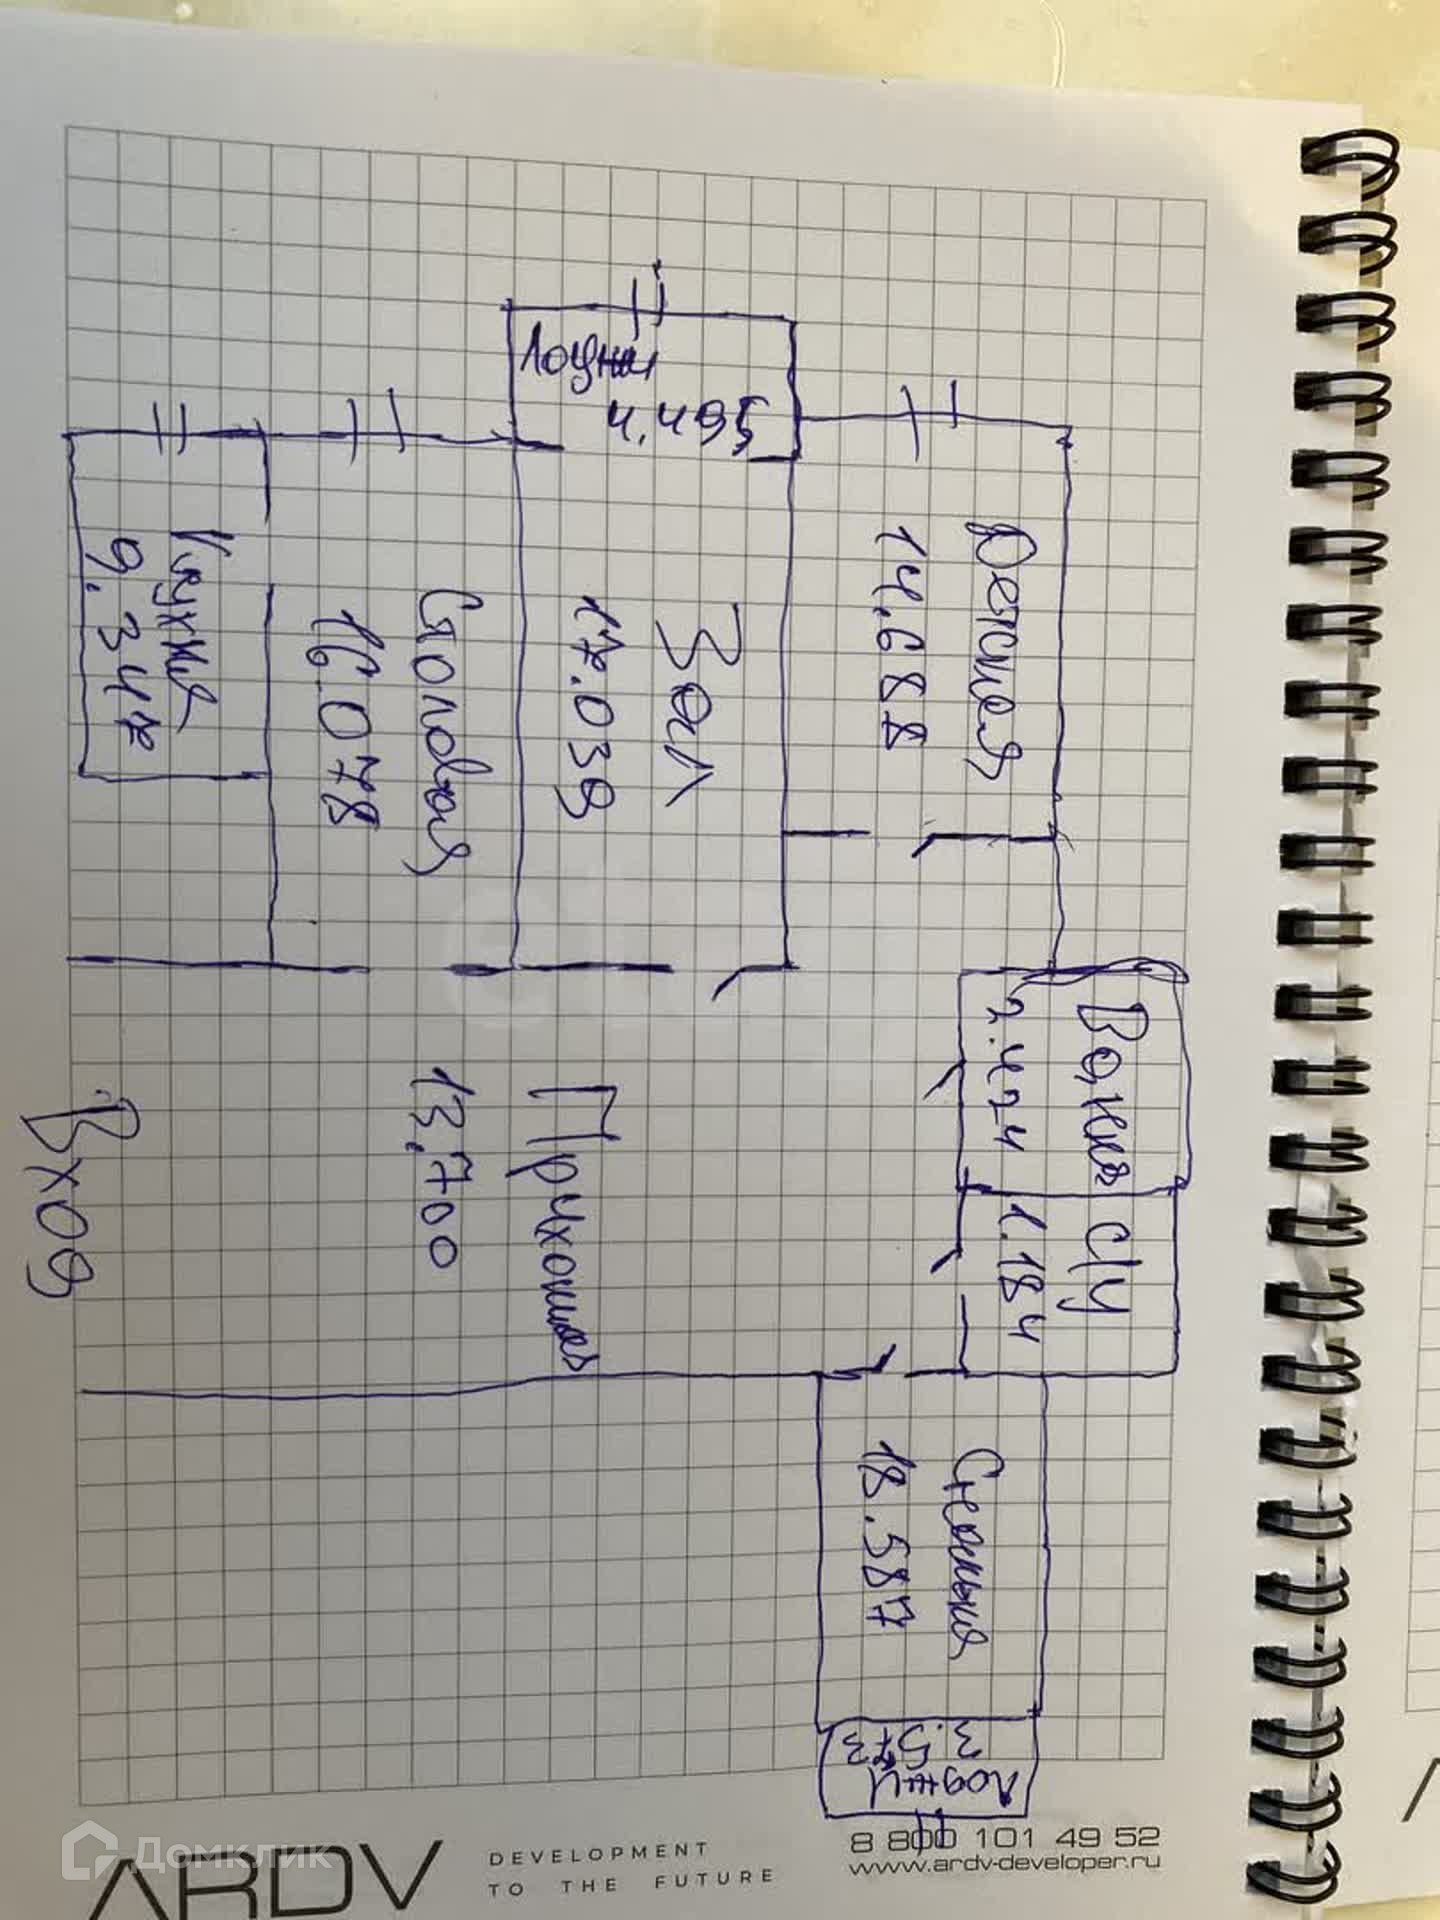 Лоджия
4.495
Детская
14,688
Зал
17.039
Столовая
16.078
Кухня
9.347
Ванна
2.424
с/у
1.184
Прихожая
13,700
Вход
Спальня
18.587
3.573
Лоджия
ARDV
DEVELOPMENT
TO THE FUTURE
8 800 101 49 52
www.ardv-developer.ru
Домклик